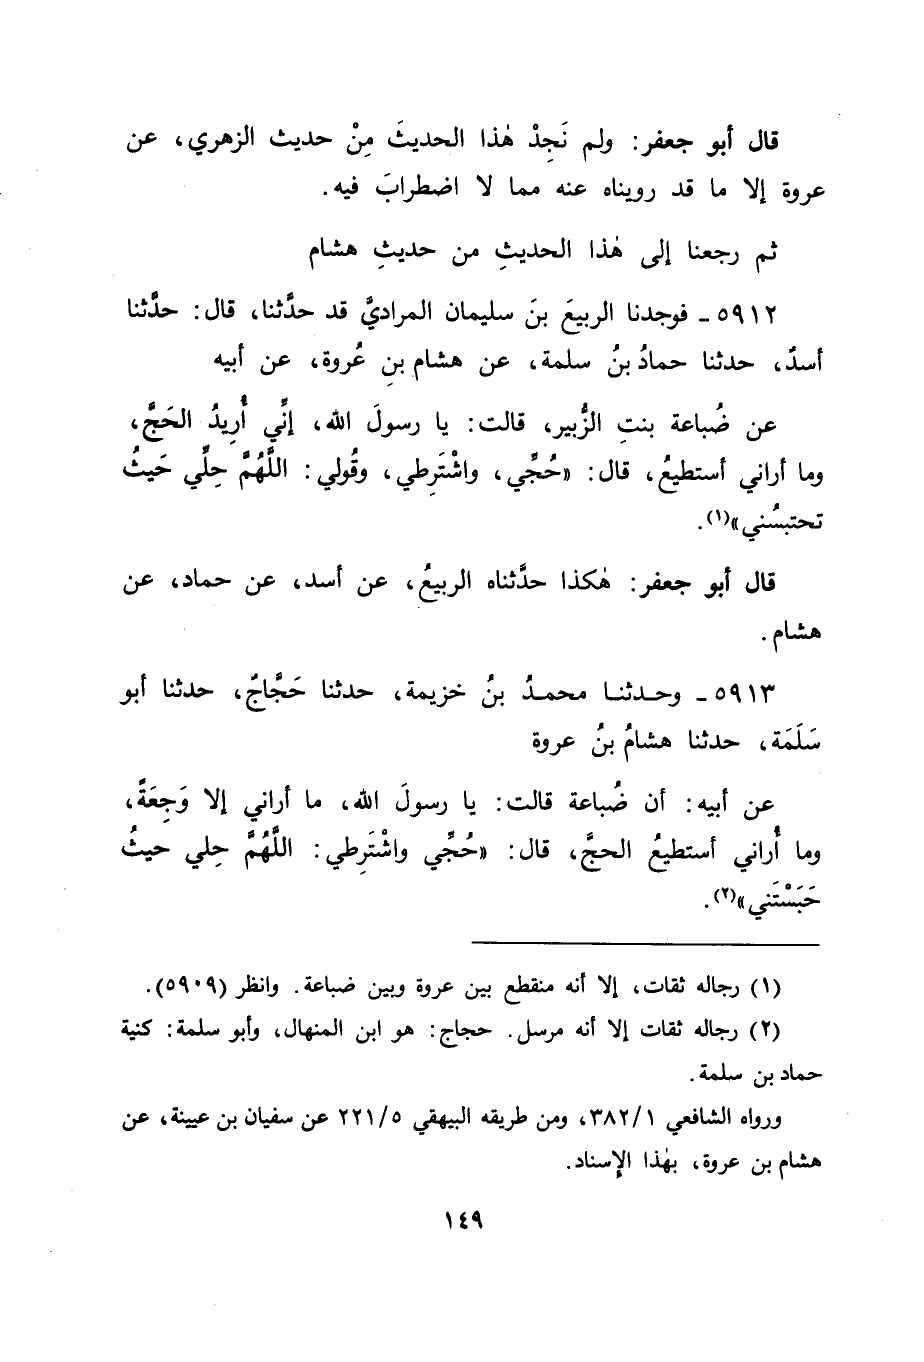 قال أبو جعفر: ولم نَجِدْ هٰذا الحديثَ مِنْ حديث الزهري، عن
عروة إلا ما قد رويناه عنه مما لا اضطرابَ فيه.
ثم رجعنا إلى هٰذا الحديثِ من حديثِ هشام
٥٩١٢ ـ فوجدنا الربيعَ بنَ سليمان المراديَّ قد حدَّثنا، قال: حدَّثنا
أسدٌ، حدثنا حمادُ بنُ سلمة، عن هشام بنِ عُروة، عن أبيه
عن ضُباعة بنتِ الزُّبير، قالت: يا رسولَ الله، إنِّي أُرِيدُ الحَجَّ،
وما أراني أستطيعُ، قال: «حُجِّي، واشْتَرِطي، وقُولي: اللَّهُمَّ حِلِّي حَيثُ
تحتبسُني»(١).
قال أبو جعفر: هٰكذا حدَّثناه الربيعُ، عن أسد، عن حماد، عن
هشام.
٥٩١٣ ـ وحـدثنـا محمـدُ بنُ خزيمة، حدثنا حَجَّاجٌ، حدثنا أبو
سَلَمَة، حدثنا هشامُ بنُ عروة
عن أبيه: أن ضُباعة قالت: يا رسولَ الله، ما أراني إلا وَجِعَةً،
وما أُراني أستطيعُ الحجَّ، قال: «حُجِّي واشْتَرِطي: اللَّهُمَّ حِلي حيثُ
حَبَسْتَني»(٢).
(١) رجاله ثقات، إلا أنه منقطع بين عروة وبين ضباعة. وانظر (٥٩٠٩).
(٢) رجاله ثقات إلا أنه مرسل. حجاج: هو ابن المنهال، وأبو سلمة: كنية
حماد بن سلمة.
ورواه الشافعي ٣٨٢/١، ومن طريقه البيهقي ٢٢١/٥ عن سفيان بن عيينة، عن
هشام بن عروة، بهٰذا الإسناد.
١٤٩